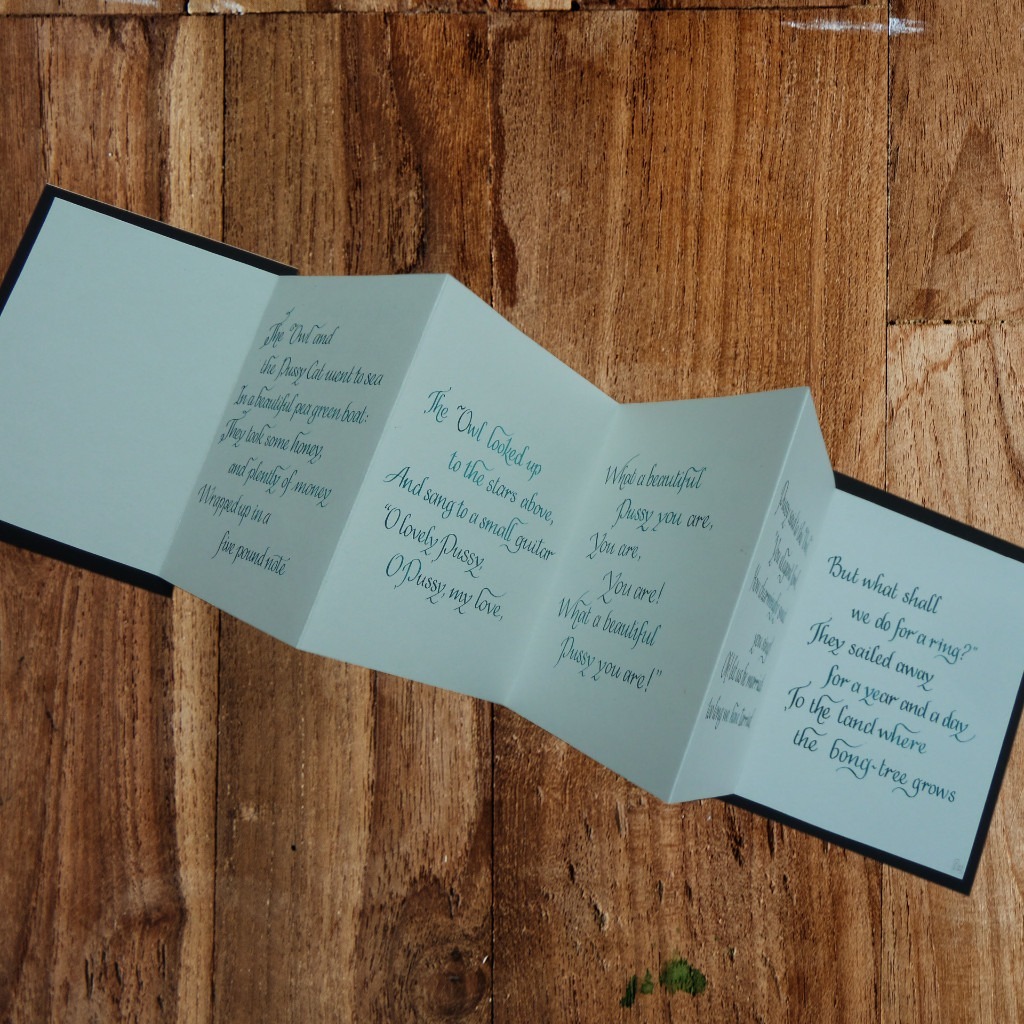 The Owl and
the Pussy Cat went to sea
In a beautiful pea green boat:
They took some honey,
and plenty of money
Wrapped up in a
five pound note
The Owl looked up
to the stars above,
And sang to a small guitar
"O lovely Pussy,
O, Pussy, my love,
What a beautiful
Pussy you are,
You are,
You are!
What a beautiful
Pussy you are!"
you sing!
But what shall
we do for a ring?"
They sailed away
for a year and a day
To the land where
the bong-tree grows